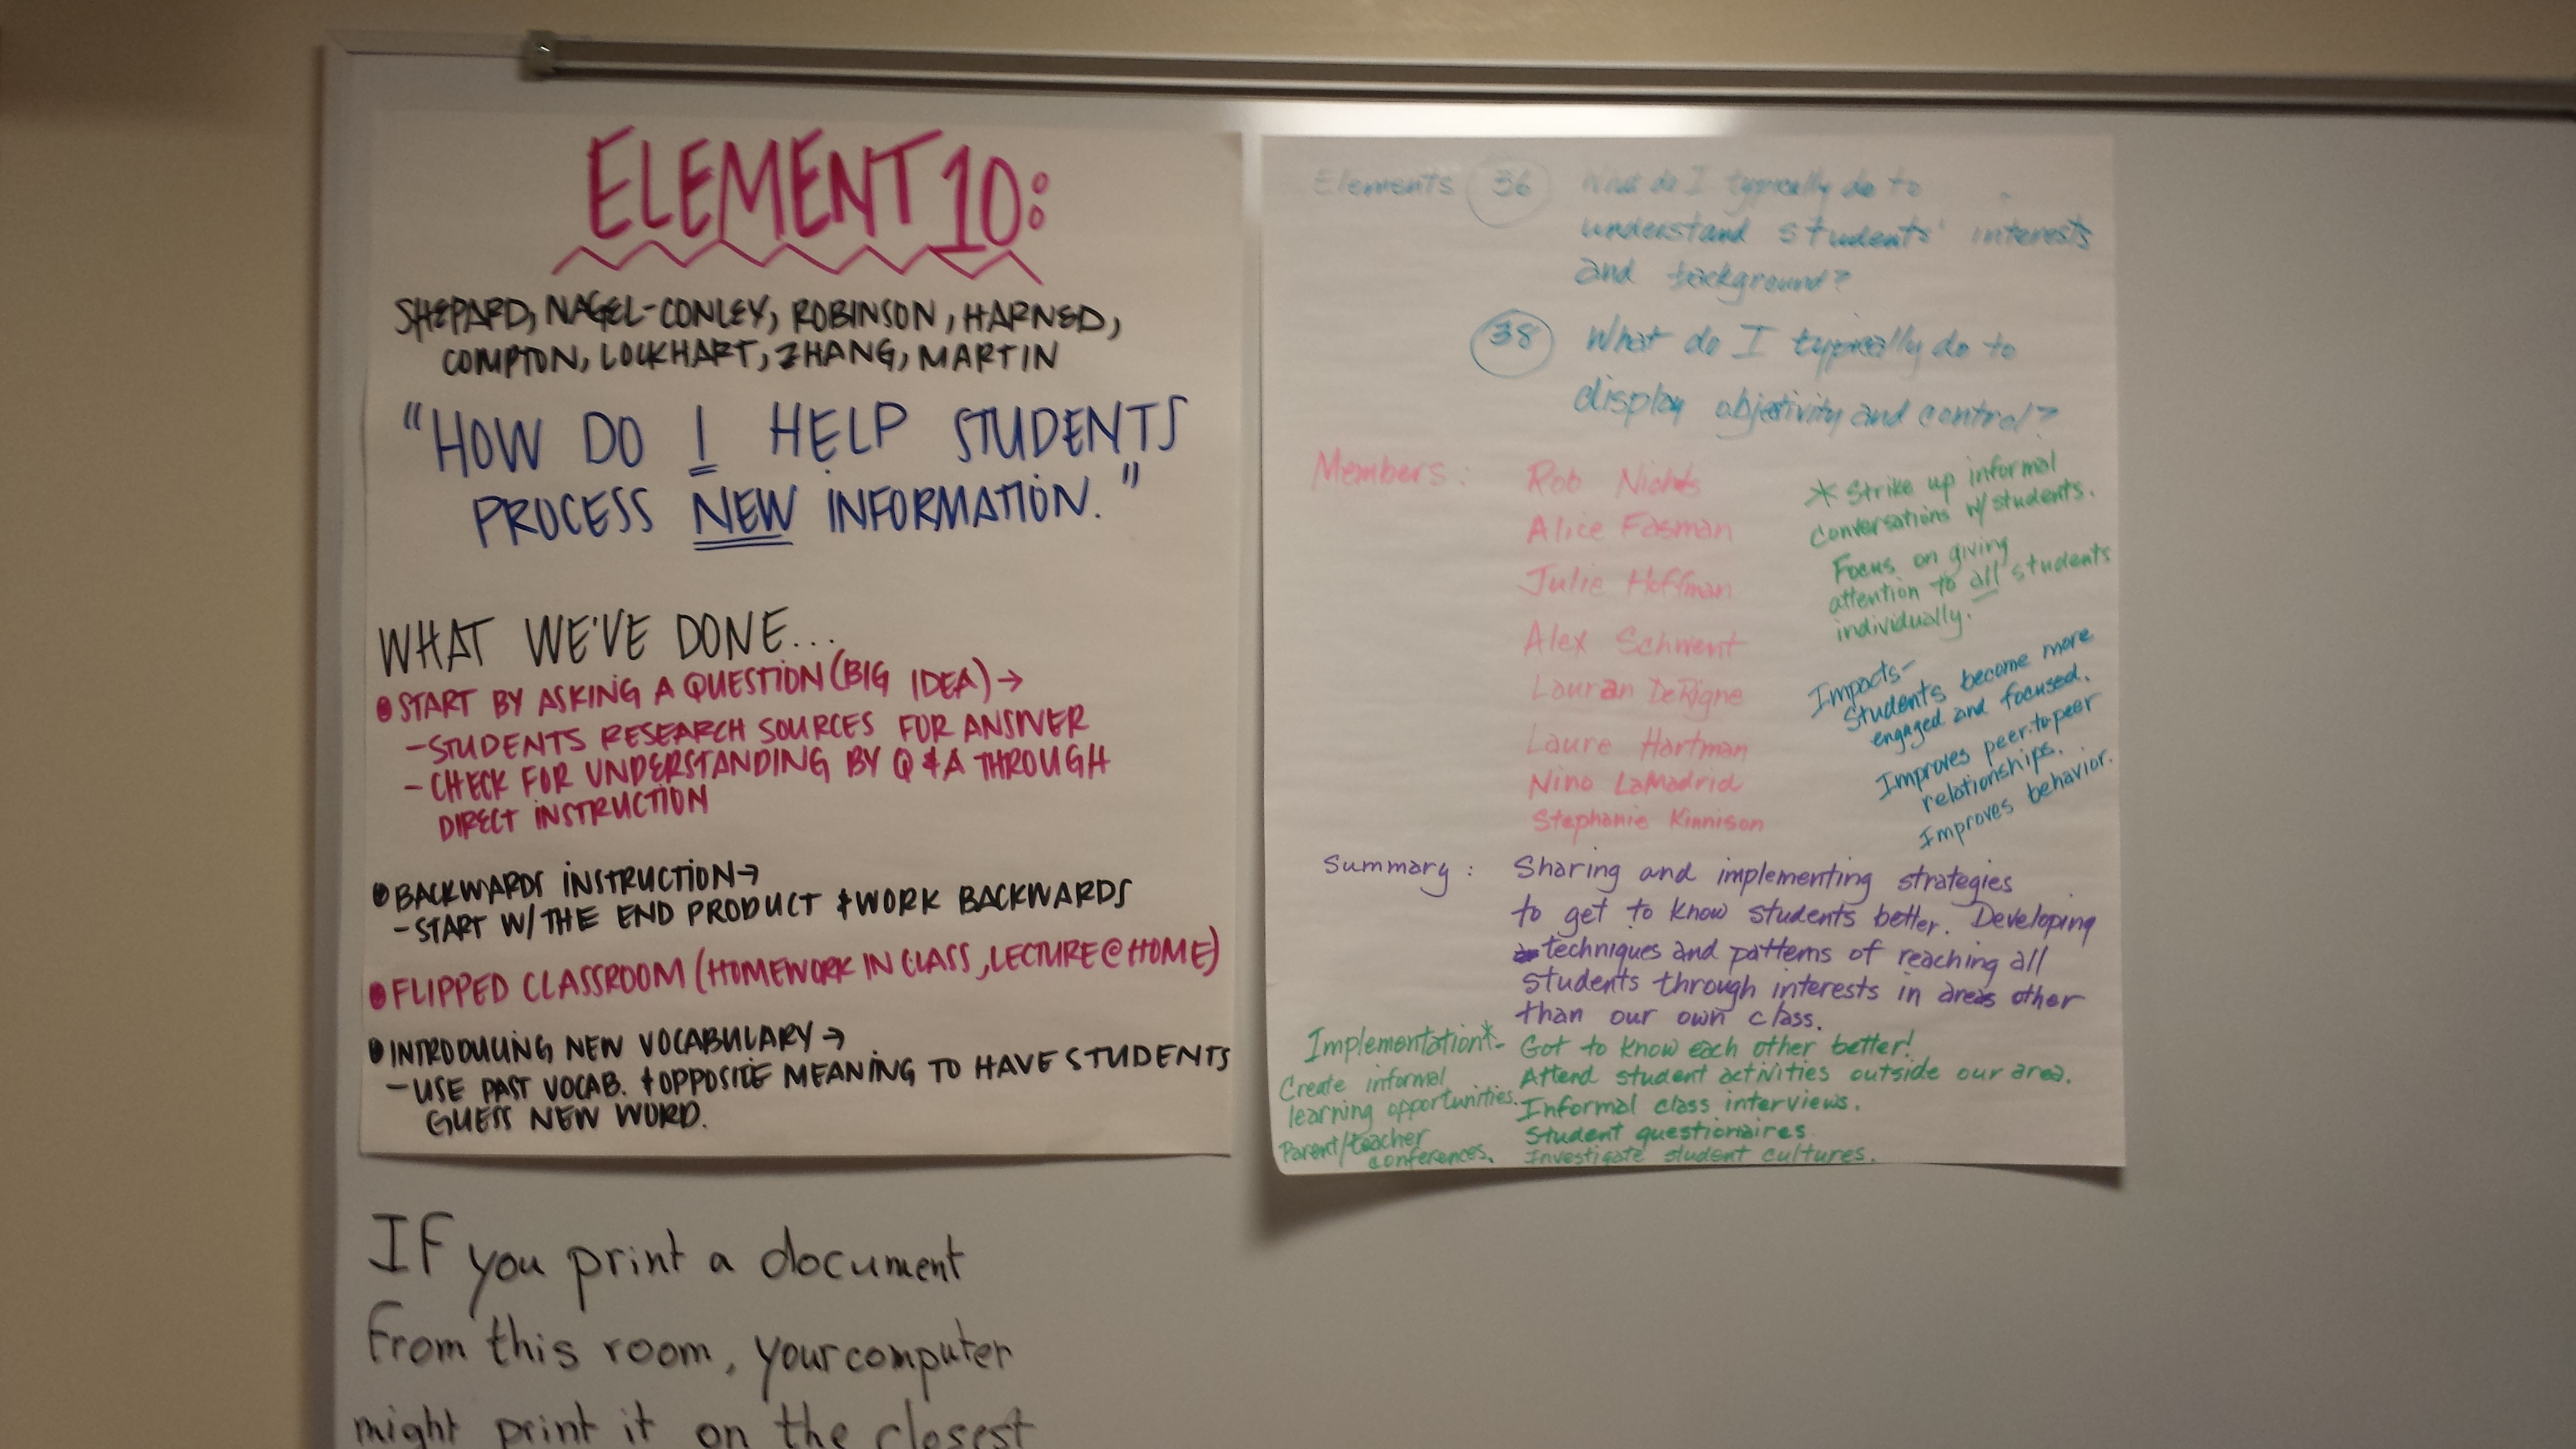 ELEMENT 10:
SHEPARD, NAGEL-CONLEY, ROBINSON, HARNED,
COMPTON, LOCKHART, ZHANG, MARTIN
"HOW DO I HELP STUDENTS
PROCESS NEW INFORMATION."
WHAT WE'VE DONE...
• START BY ASKING A QUESTION (BIG IDEA) →
- STUDENTS RESEARCH SOURCES FOR ANSWER
- CHECK FOR UNDERSTANDING BY Q & A THROUGH
DIRECT INSTRUCTION
• BACKWARDS INSTRUCTION →
- START W/ THE END PRODUCT & WORK BACKWARDS
• FLIPPED CLASSROOM (HOMEWORK IN CLASS, LECTURE @ HOME)
• INTRODUCING NEW VOCABULARY →
- USE PAST VOCAB. & OPPOSITE MEANING TO HAVE STUDENTS
GUESS NEW WORD.
Elements 36 What do I typically do to
understand students' interests
and background?
38 What do I typically do to
display objectivity and control?
Members: Rob
Alice Fasman
Julie Hoffman
Alex Schwent
Lauran DeRigne
Laure Hartman
Nino LaMadrid
Stephanie Kinnison
* Strike up informal
conversations w/ students.
Focus on giving
attention to all students
individually.
Impacts-
Students become more
engaged and focused.
Improves peer-to-peer
relationships.
Improves behavior.
Summary: Sharing and implementing strategies
to get to know students better. Developing
techniques and patterns of reaching all
students through interests in areas other
than our own class.
Implementation* - Got to know each other better!
Attend student activities outside our area.
Informal class interviews.
Student questionaires
Investigate student cultures.
Create informal
learning opportunities.
Parent/teacher
conferences.
If you print a document
from this room, your computer
might print it on the closest